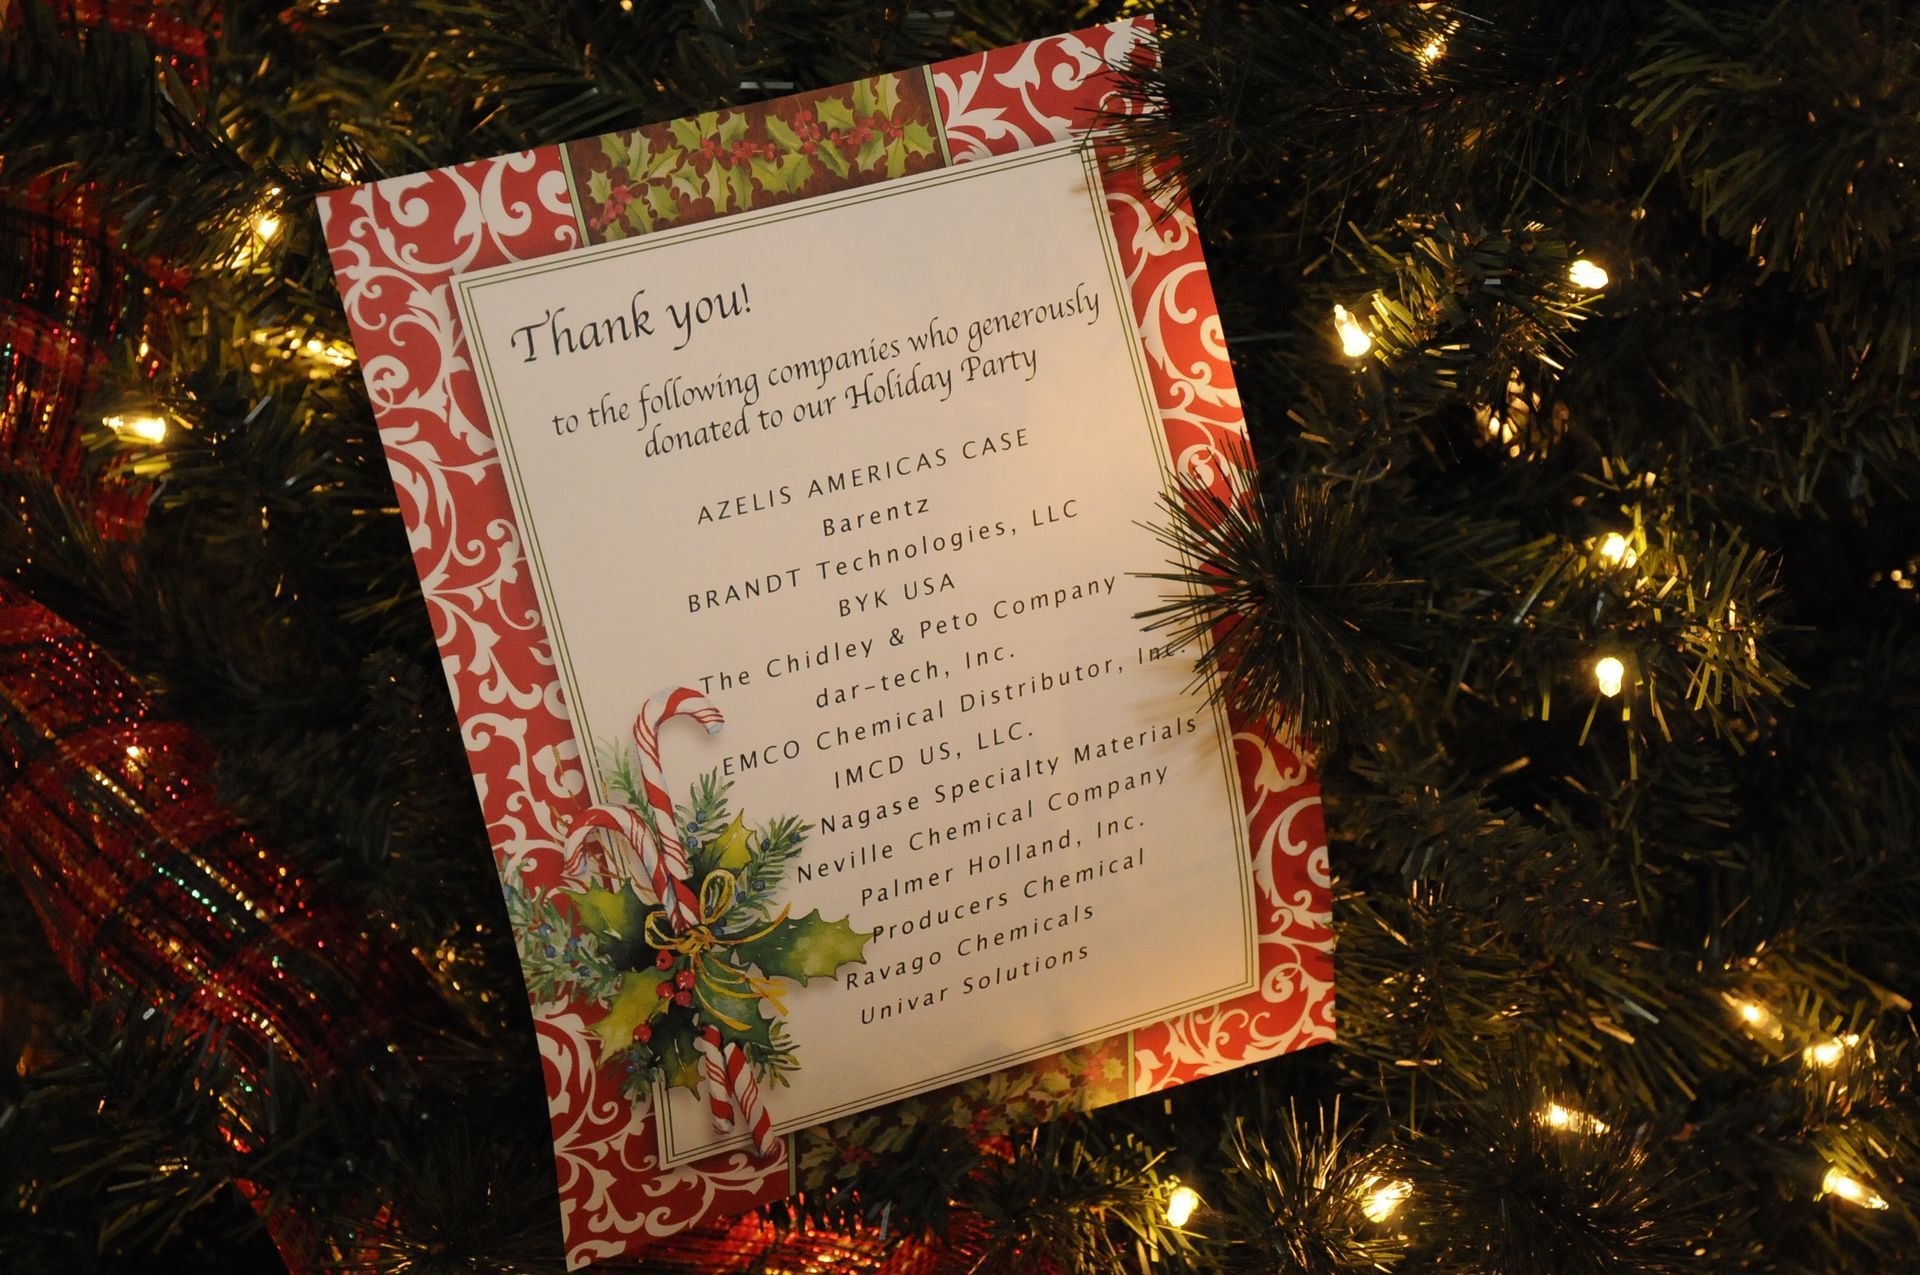 Thank you!
to the following companies who generously
donated to our Holiday Party
AZELIS AMERICAS CASE
Barentz
BRANDT Technologies, LLC
BYK USA
The Chidley & Peto Company
dar-tech, Inc.
EMCO Chemical Distributor, Inc.
IMCD US, LLC.
Nagase Specialty Materials
Neville Chemical Company
Palmer Holland, Inc.
Producers Chemical
Ravago Chemicals
Univar Solutions